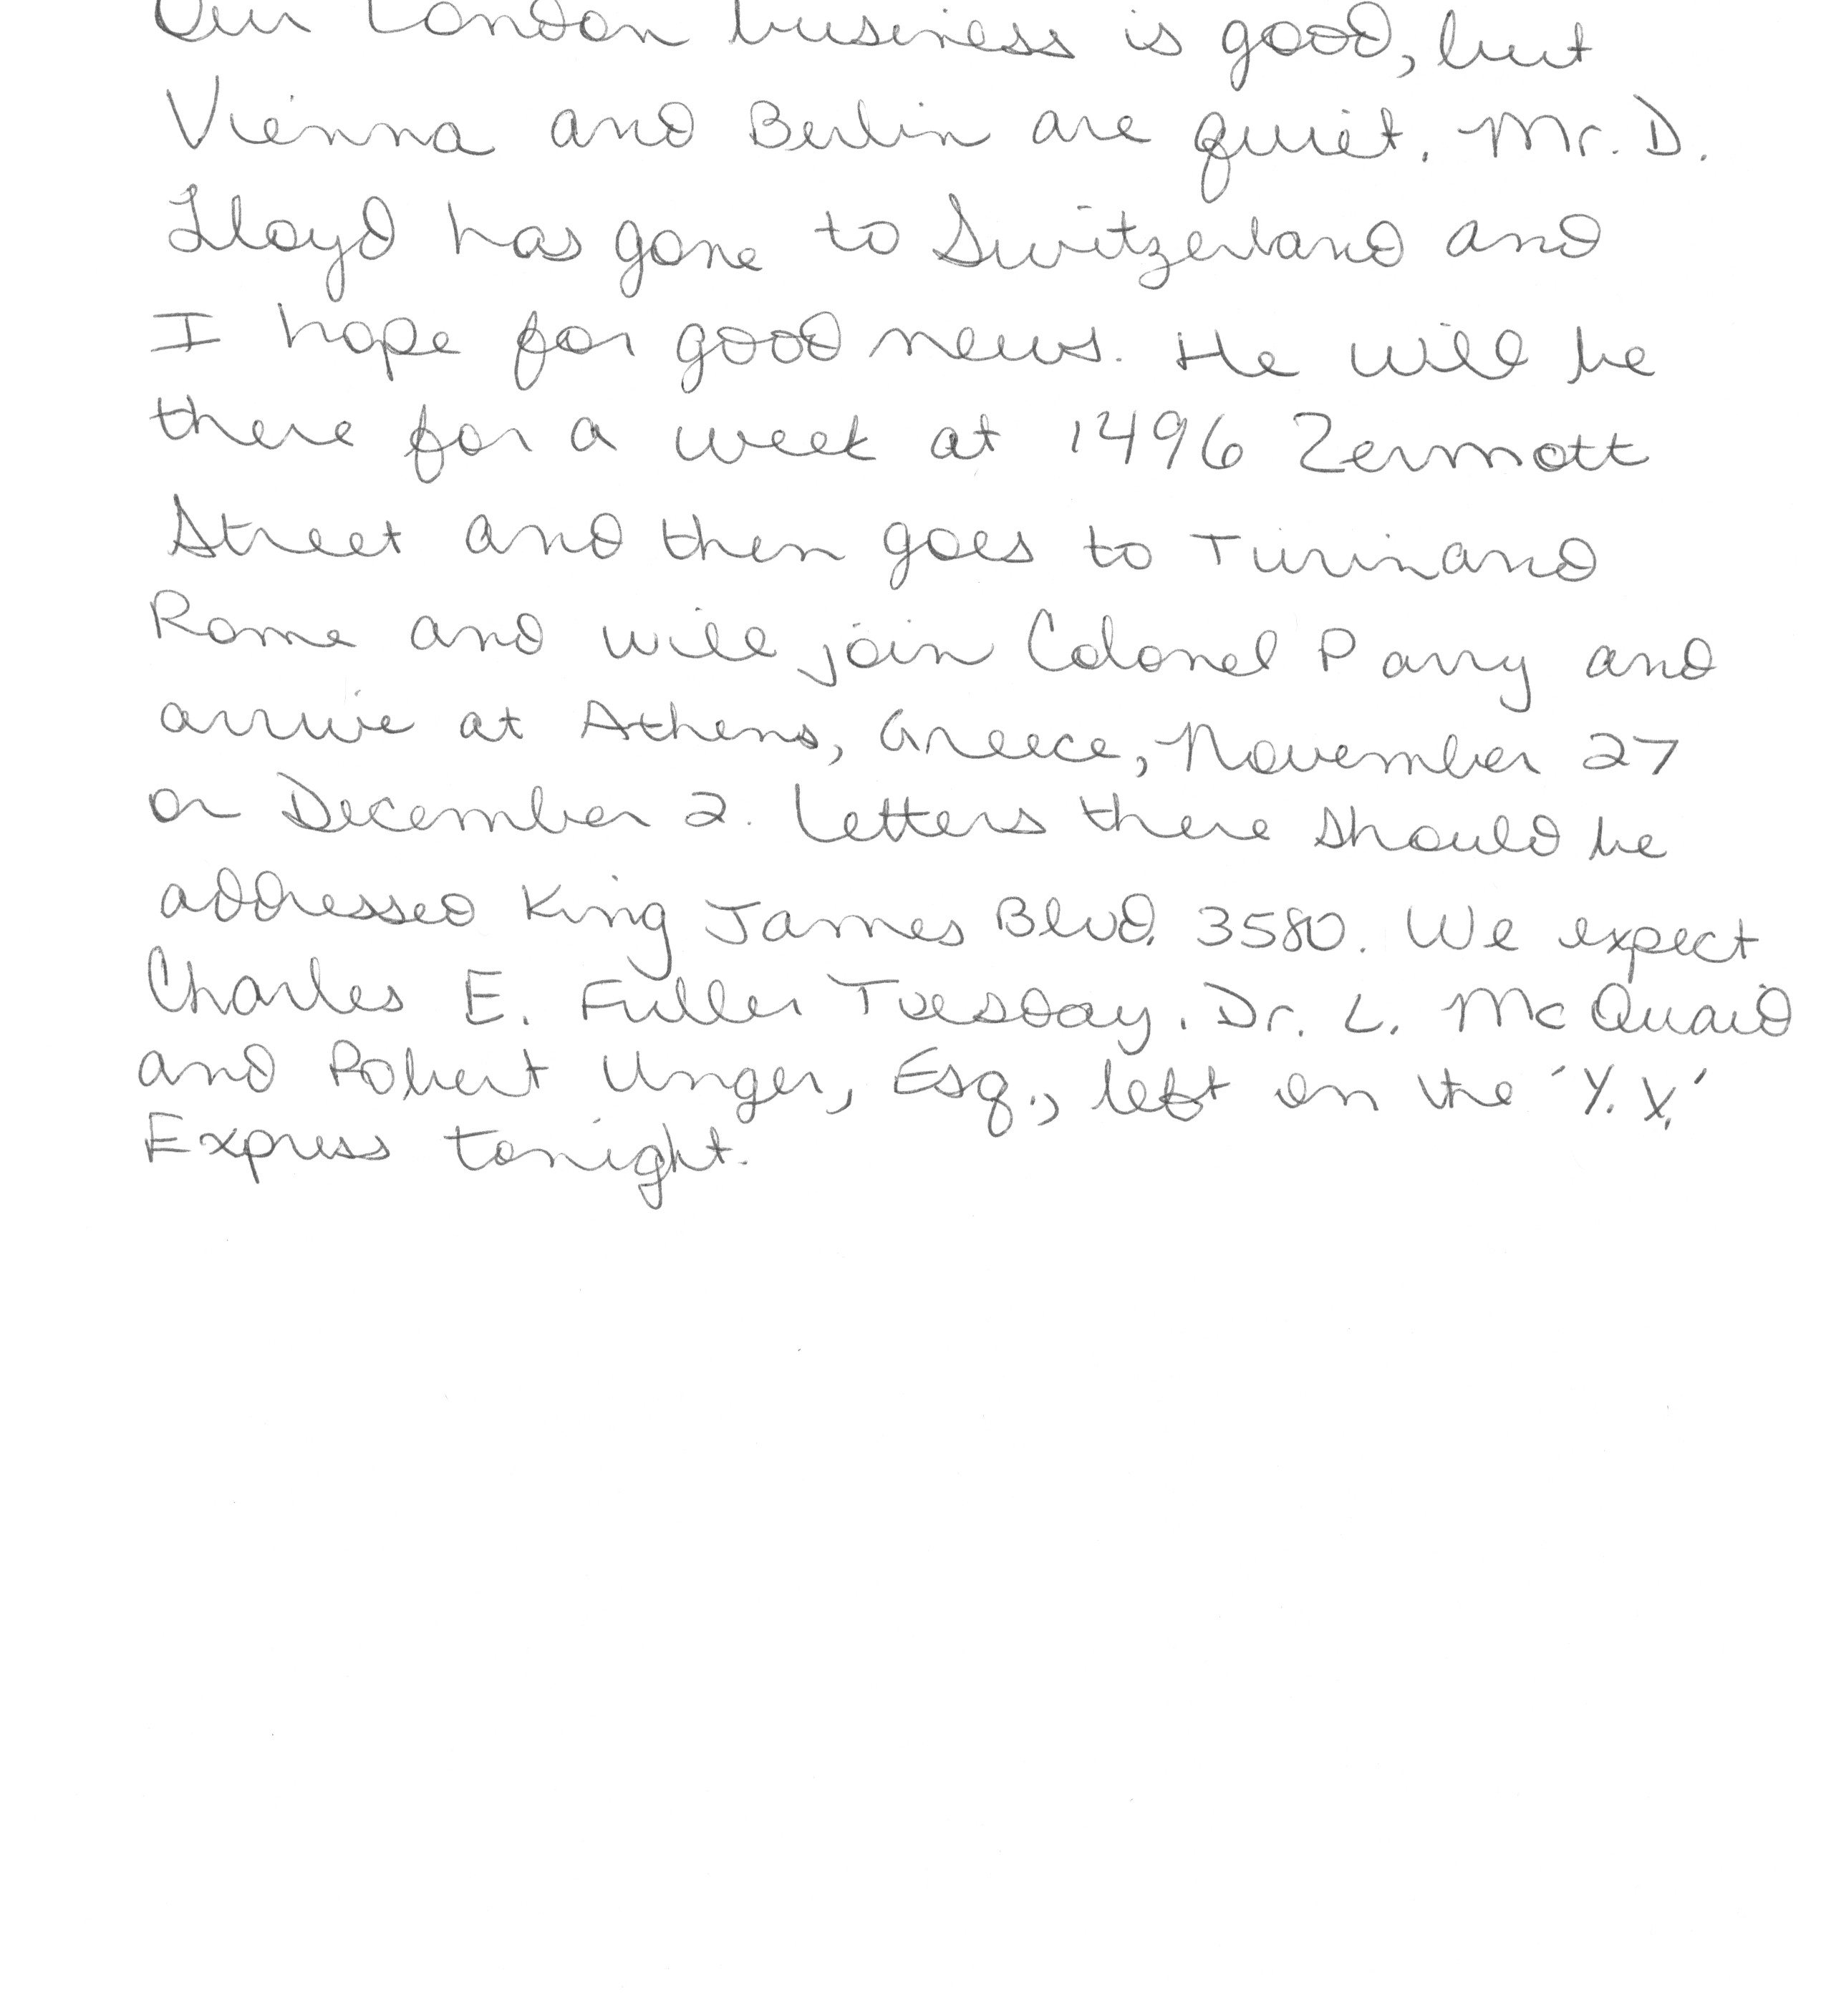 Our London business is good, but
Vienna and Berlin are quiet. Mr. D.
Lloyd has gone to Switzerland and
I hope for good news. He will be
there for a week at 1496 Zermott
Street and then goes to Turin and
Rome and will join Colonel Parry and
arrive at Athens, Greece, November 27
or December 2. Letters there should be
addressed King James Blvd. 3580. We expect
Charles E. Fuller Tuesday. Dr. L. McQuaid
and Robert Unger, Esq., left on the 'Y.X.'
Express tonight.